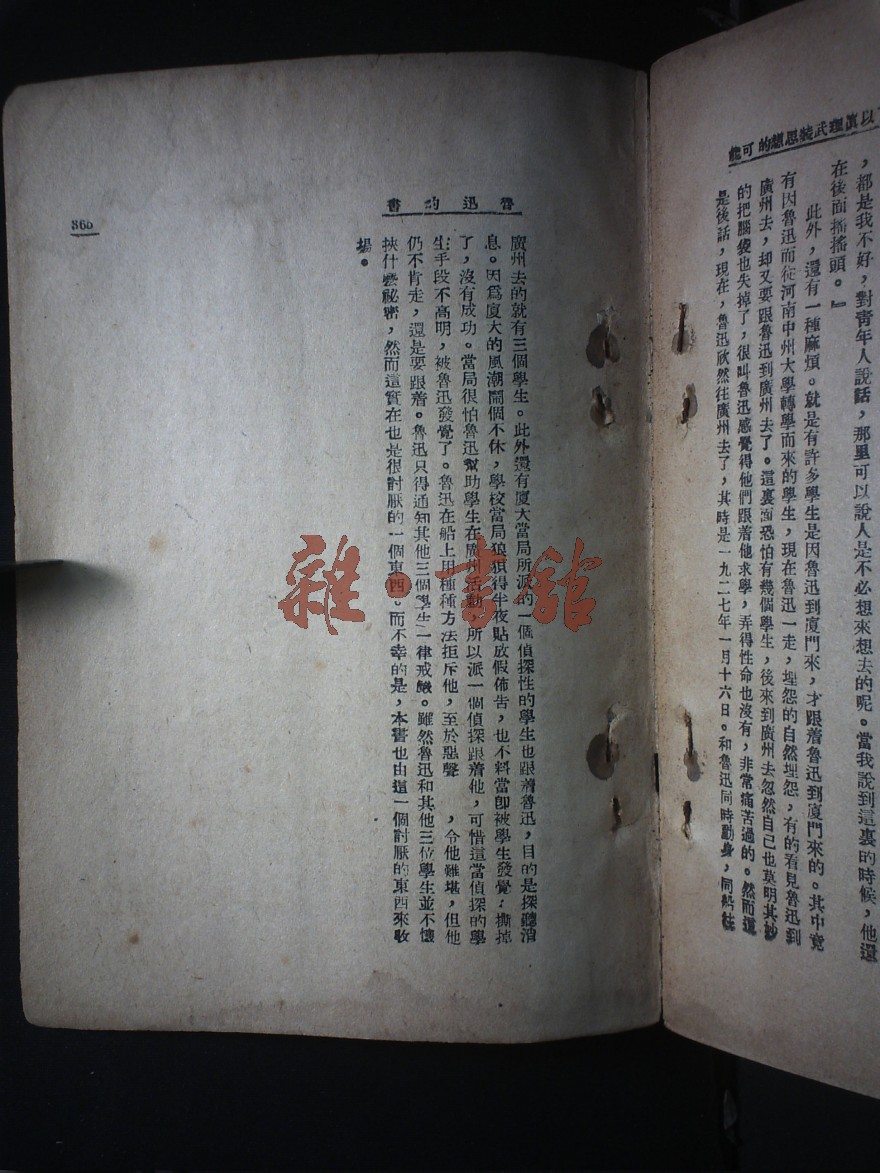 以眞理武裝思想的可能
，都是我不好，對靑年人說話，那里可以說人是不必想來想去的呢。當我說到這裏的時候，他還
在後面搖搖頭。』
此外，還有一種麻煩。就是有許多學生是因魯迅到廈門來，才跟着魯迅到廈門來的。其中竟
有因魯迅而從河南中州大學轉學而來的學生，現在魯迅一走，埋怨的自然埋怨，有的看見魯迅到
廣州去，却又要跟魯迅到廣州去了。這裏面恐怕有幾個學生，後來到廣州去忽然自己也莫明其妙
的把腦袋也失掉了，很叫魯迅感覺得他們跟着他求學，弄得性命也沒有，非常痛苦過的。然而這
是後話，現在，魯迅欣然往廣州去了，其時是一九二七年一月十六日。和魯迅同時動身，同船往
魯迅的書
廣州去的就有三個學生。此外還有廈大當局所派的一個偵探性的學生也跟着魯迅，目的是探聽消
息。因爲廈大的風潮鬧個不休，學校當局狼狽得半夜貼放假佈告，也不料當卽被學生發覺，撕掉
了，沒有成功。當局很怕魯迅幫助學生在廣州活動，所以派一個偵探跟着他，可惜這當偵探的學
生手段不高明，被魯迅發覺了。魯迅在船上用種種方法拒斥他，至於惡聲　，令他難堪，但他
仍不肯走，還是要跟着。魯迅只得通知其他三個學生一律戒嚴。雖然魯迅和其他三位學生並不懷
挾什麽祕密，然而這實在也是很討厭的一個東西。而不幸的是，本書也由這一個討厭的東西來收
場。
366
雜·書館